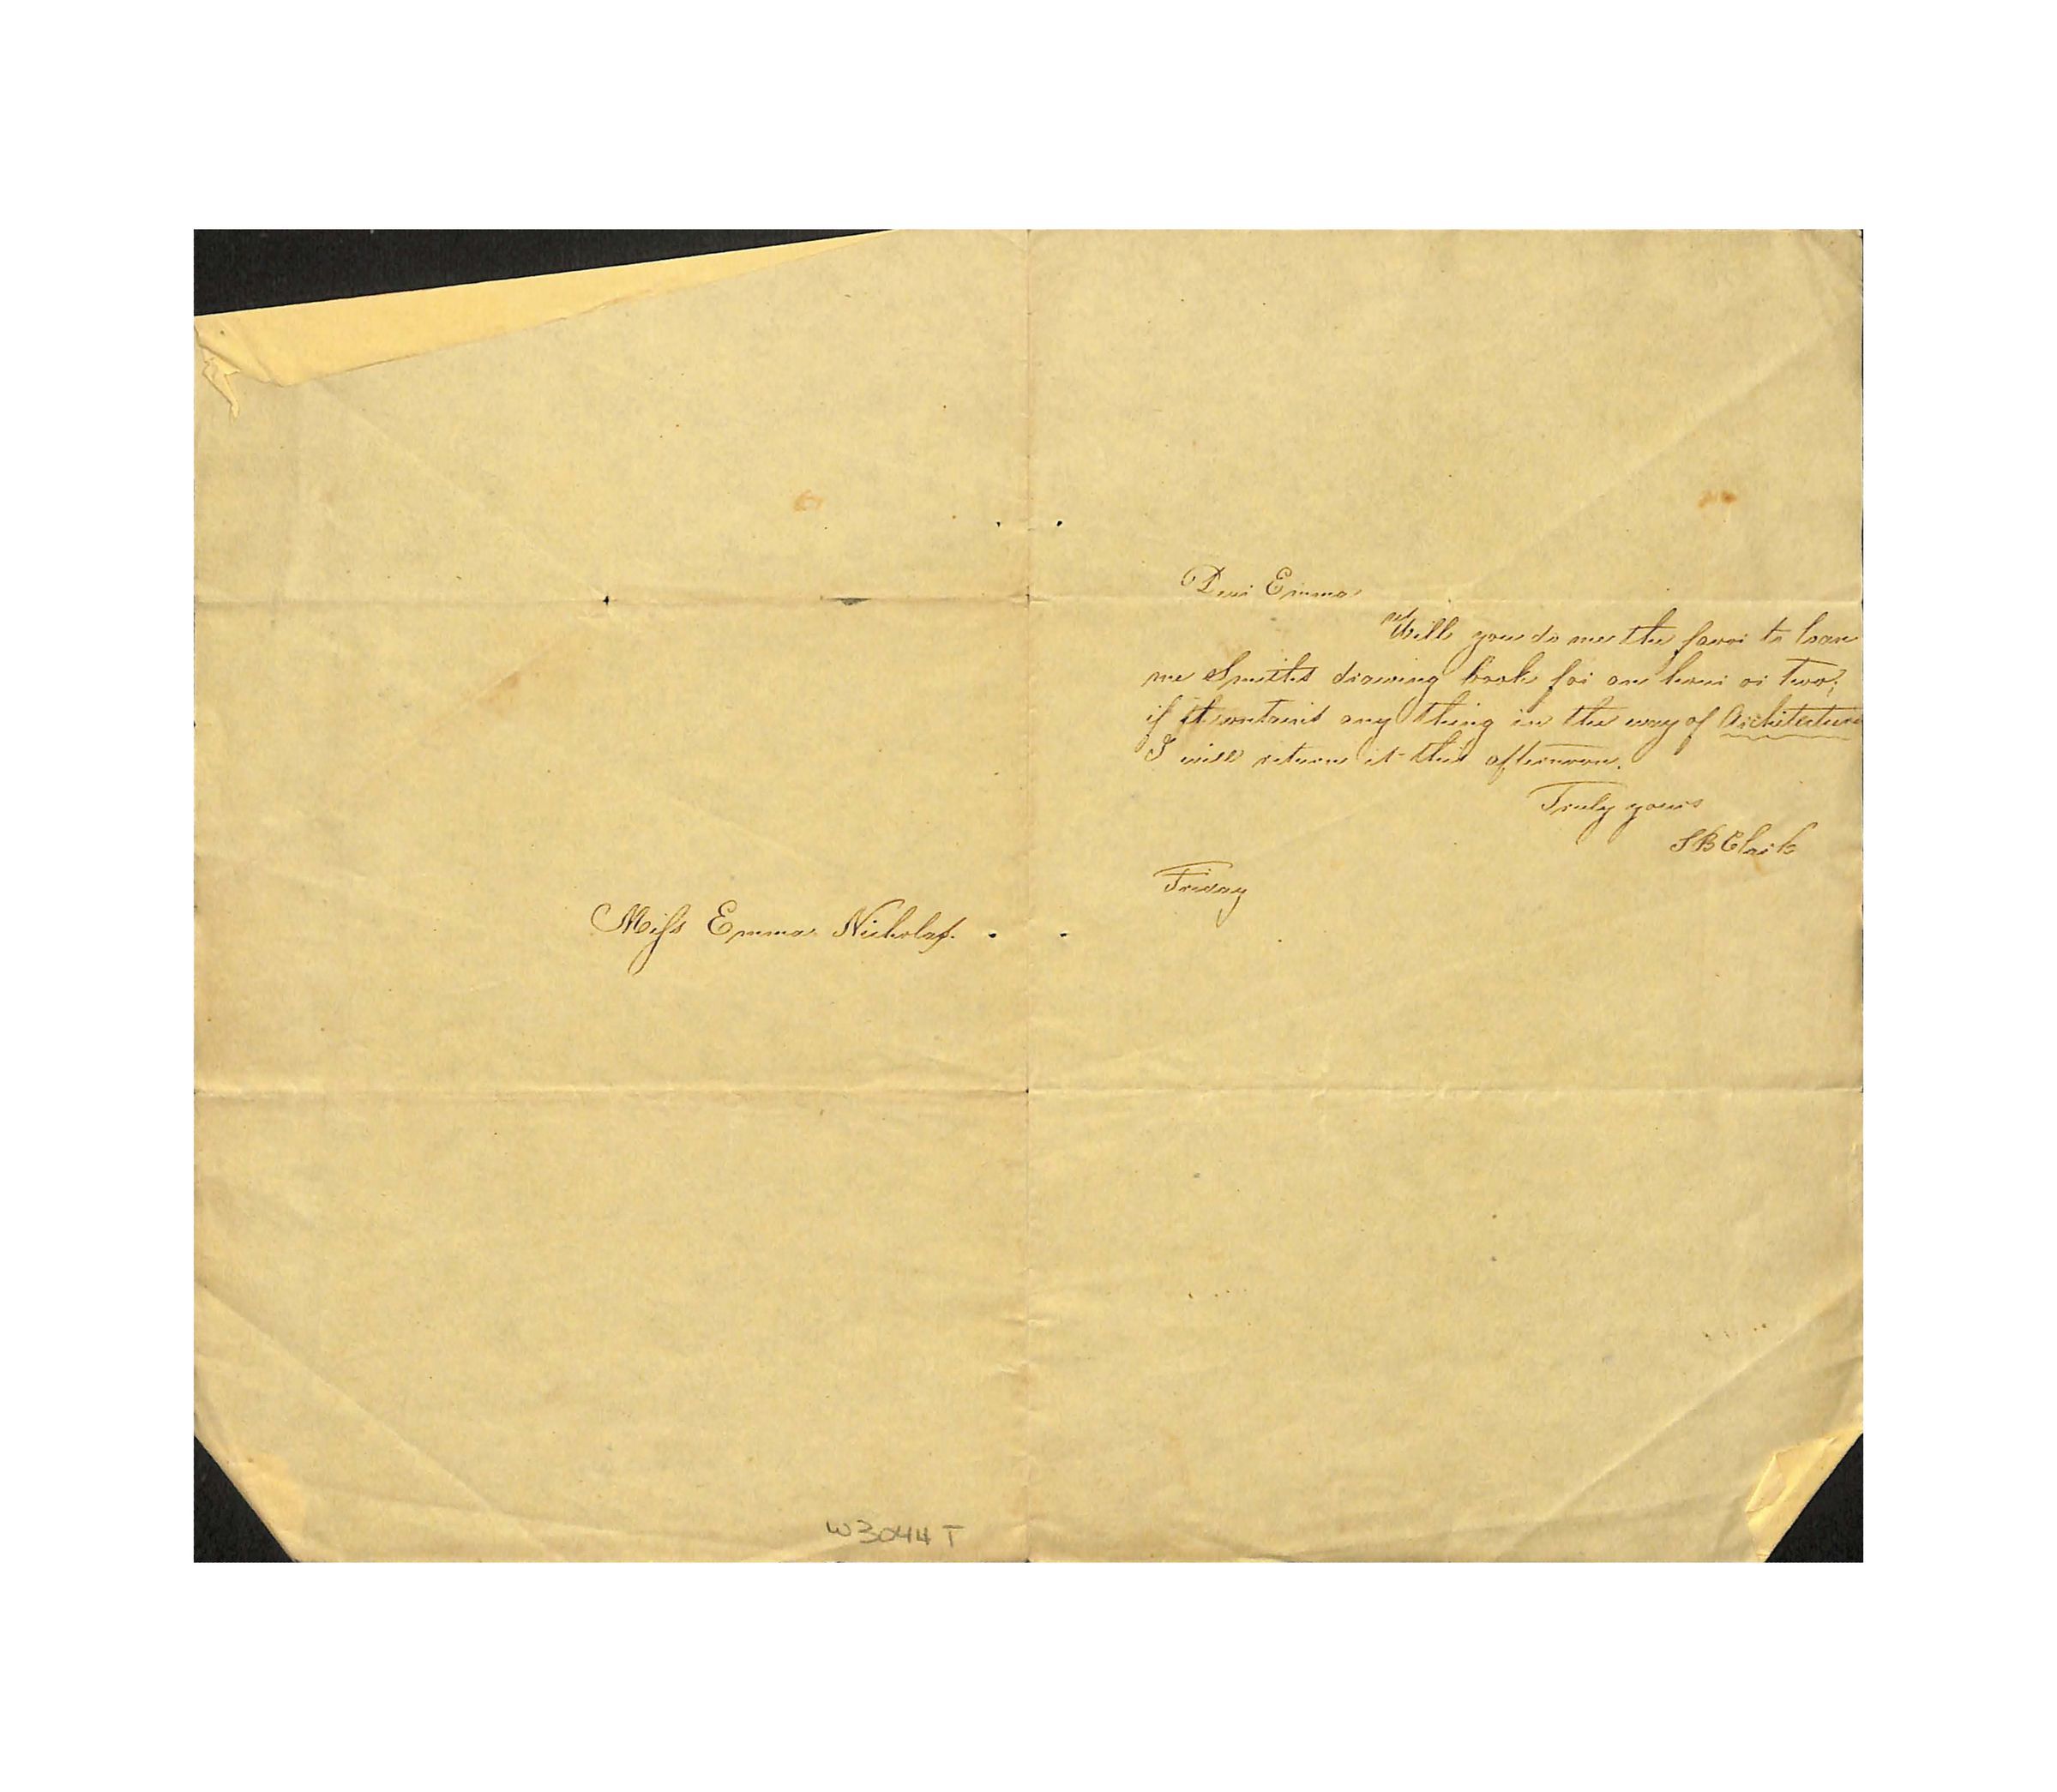 Dear Emma
Will you do me the favor to loan
me Smiths drawing book for an hour or two;
if it contains any thing in the way of Architecture
I will return it this afternoon.
Truly yours
S B Clark
Friday
Miss Emma Nicholas.
W3044T